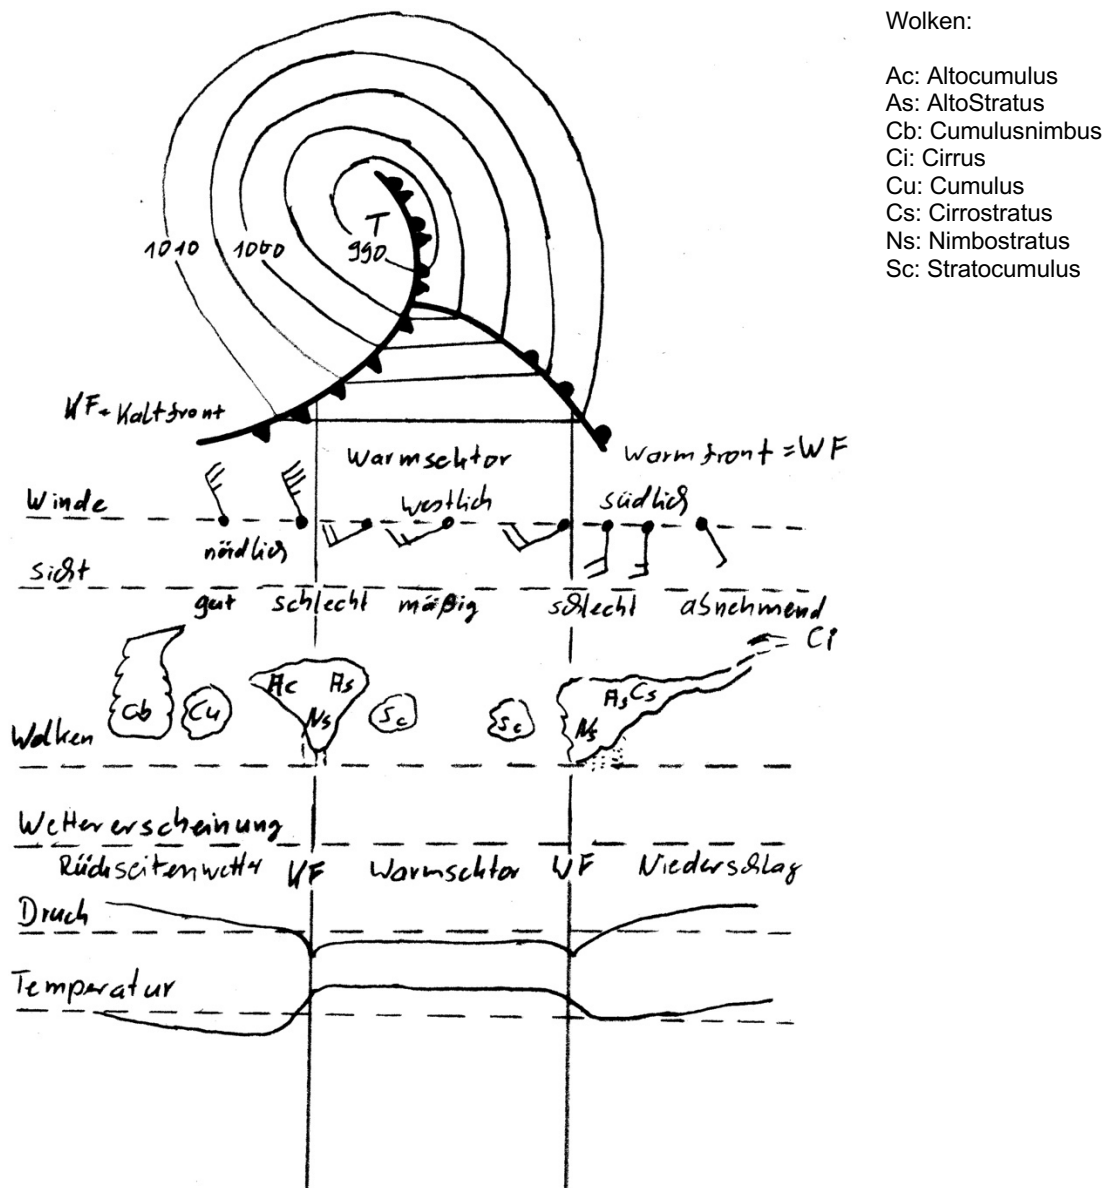 Wolken:
Ac: Altocumulus
As: AltoStratus
Cb: Cumulusnimbus
Ci: Cirrus
Cu: Cumulus
Cs: Cirrostratus
Ns: Nimbostratus
Sc: Stratocumulus
T
1010 1000 990
KF = Kaltfront
Warmsektor
Warmfront = WF
Winde
nördlich
westlich
südlich
Sicht
gut schlecht mäßig schlecht abnehmend
Ci
Cb Cu Ac As Ns Sc Sc As Cs Ns
Wolken
Wettererscheinung
Rückseitenwetter KF Warmsektor WF Niederschlag
Druck
Temperatur